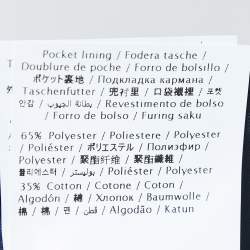 Pocket lining / Fodera tasche /
Doublure de poche / Forro de bolsillo /
ポケット裏地 / Подкладка кармана /
Taschenfutter / 兜衬里 / 口袋襯裡 / 포켓
안감 / بطانة الجيوب / Revestimento de bolso
/ Forro de bolso / Furing saku
65% Polyester / Poliestere / Polyester
/ Poliéster / ポリエステル / Полиэфир /
Polyester / 聚酯纤维 / 聚酯纖維 /
폴리에스터 / بوليستر / Poliéster / Polyester
35% Cotton / Cotone / Coton /
Algodón / 綿 / Хлопок / Baumwolle /
棉 / 棉 / 면 / قطن / Algodão / Katun